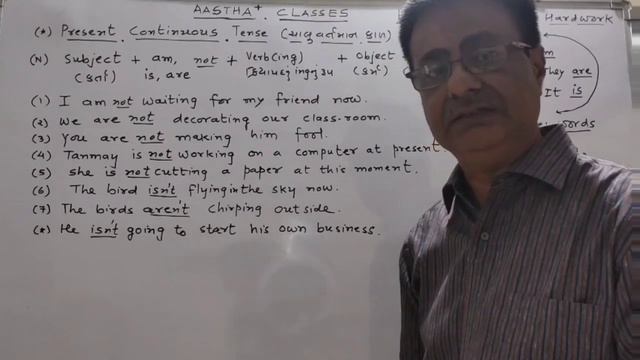 AASTHA+ CLASSES
Hardwork
(*) Present Continuous Tense (ચાલુ વર્તમાન કાળ)
(N) Subject + am, not + Verb(ing) + Object
(કર્તા) is, are (કર્મ)
they are
It is
(1) I am not waiting for my friend now.
words
(2) We are not decorating our class-room.
(3) You are not making him fool.
(4) Tanmay is not working on a computer at present.
(5) she is not cutting a paper at this moment.
(6) The bird isn't flying in the sky now.
(7) The birds aren't chirping outside.
(*) He isn't going to start his own business.